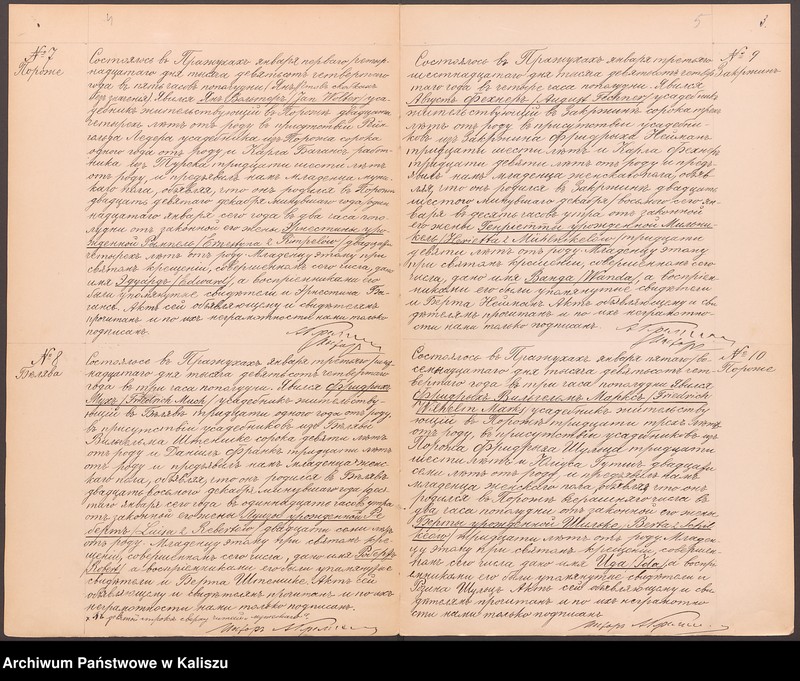 4
№ 7
Пороже
Состоялось въ Пражухахъ января перваго/четыр-
надцатаго дня тысяча девятсотъ четвертаго
года въ пять часовъ пополудни
Явился Янъ Вольтеръ /Jan Wolter/ уса-
дебникъ жительствующій въ Пороже двадцати
четырехъ лѣтъ отъ роду въ присутствіи
Ледера усадебника изъ Порожа сорока
одного года отъ роду и работ-
ника изъ Турека тридцати шести лѣтъ
отъ роду, и предъявилъ намъ младенца муж-
скаго пола, объявляя, что онъ родился въ Пороже
двадцать девятаго декабря минувшаго года
надцатаго января сего года въ два часа попо-
лудни отъ законной его жены Эрнестины уро-
жденной двадцати
четырехъ лѣтъ отъ роду. Младенцу этому при
святомъ крещеніи, совершенномъ сего числа, дано
имя Эдуардъ /Edward/, а воспріемниками его
были упомянутые свидѣтели и
Актъ сей объявляющему и свидѣтелямъ
прочитанъ и по ихъ неграмотности нами только
подписанъ.
№ 8
Белява
Состоялось въ Пражухахъ января третьяго/шест-
надцатаго дня тысяча девятсотъ четвертаго
года въ три часа пополудни. Явился Фридрихъ
Мухъ /Friedrich Much/ усадебникъ жительству-
ющій въ Белявѣ тридцати одного года отъ роду,
въ присутствіи усадебниковъ изъ Белявы
Вильгельма Штенцке сорока девяти лѣтъ
отъ роду и Даніила Франкъ тридцати лѣтъ
отъ роду и предъявилъ намъ младенца женс-
каго пола, объявляя, что онъ родился въ Белявѣ
двадцать восьмаго декабря минувшаго года/деся-
таго января сего года въ одиннадцать часовъ
отъ законной его жены Луизы урожденной Ре-
бертъ двадцати семи лѣтъ
отъ роду. Младенцу этому при святомъ кре-
щеніи, совершенномъ сего числа, дано имя Робертъ
/Robert/ а воспріемниками его были упомянутые
свидѣтели и Берта Штенцке. Актъ сей
объявляющему и свидѣтелямъ прочитанъ и по ихъ
неграмотности нами только подписанъ.
5
3.
№ 9
Закржинъ
Состоялось въ Пражухахъ января третьяго
шестнадцатаго дня тысяча девятсотъ четвер-
таго года въ четыре часа пополудни. Явился
Августъ Фехнеръ /August Fechner/ усадебникъ
жительствующій въ Закржинѣ сорока трехъ
лѣтъ отъ роду, въ присутствіи усадебни-
ковъ изъ Закржина Фридриха Нейманъ
тридцати шести лѣтъ и Карла Фехнеръ
тридцати девяти лѣтъ отъ роду и предъ-
явилъ намъ младенца женскаго пола, объяв-
ляя, что онъ родился въ Закржинѣ двадцать
шестого минувшаго декабря /восьмаго сего ян-
варя въ десять часовъ утра отъ законной
его жены Генріетты урожденной
тридцати
девяти лѣтъ отъ роду. Младенцу этому
при святомъ крещеніи, совершенномъ сего
числа, дано имя Ванда /Wanda/, а воспріем-
никами его были упомянутые свидѣтели
и Берта Нейманъ. Актъ объявляющему и сви-
дѣтелямъ прочитанъ и по ихъ неграмотно-
сти нами только подписанъ.
№ 10
Пороже
Состоялось въ Пражухахъ января пятаго/во-
семнадцатаго дня тысяча девятсотъ чет-
вертаго года въ три часа пополудни. Явился
Фридрихъ Вильгельмъ Марксъ /Friedrich
Wilhelm Marks/ усадебникъ жительству-
ющій въ Пороже тридцати трехъ лѣтъ
отъ роду, въ присутствіи усадебниковъ изъ
Порожа Фридриха Шульца тридцати
шести лѣтъ и двадцати
семи лѣтъ отъ роду и предъявилъ намъ
младенца женскаго пола, объявляя, что онъ
родился въ Пороже вчерашняго числа въ
два часа пополудни отъ законной его жены
Берты урожденной
тридцати лѣтъ отъ роду. Младен-
цу этому при святомъ крещеніи, соверше-
нномъ сего числа, дано имя Ида /Ida/, а воспрі-
емниками его были упомянутые свидѣтели и
Шульцъ. Актъ сей объявляющему и сви-
дѣтелямъ прочитанъ и по ихъ неграмотно-
сти нами только подписанъ.
Archiwum Państwowe w Kaliszu